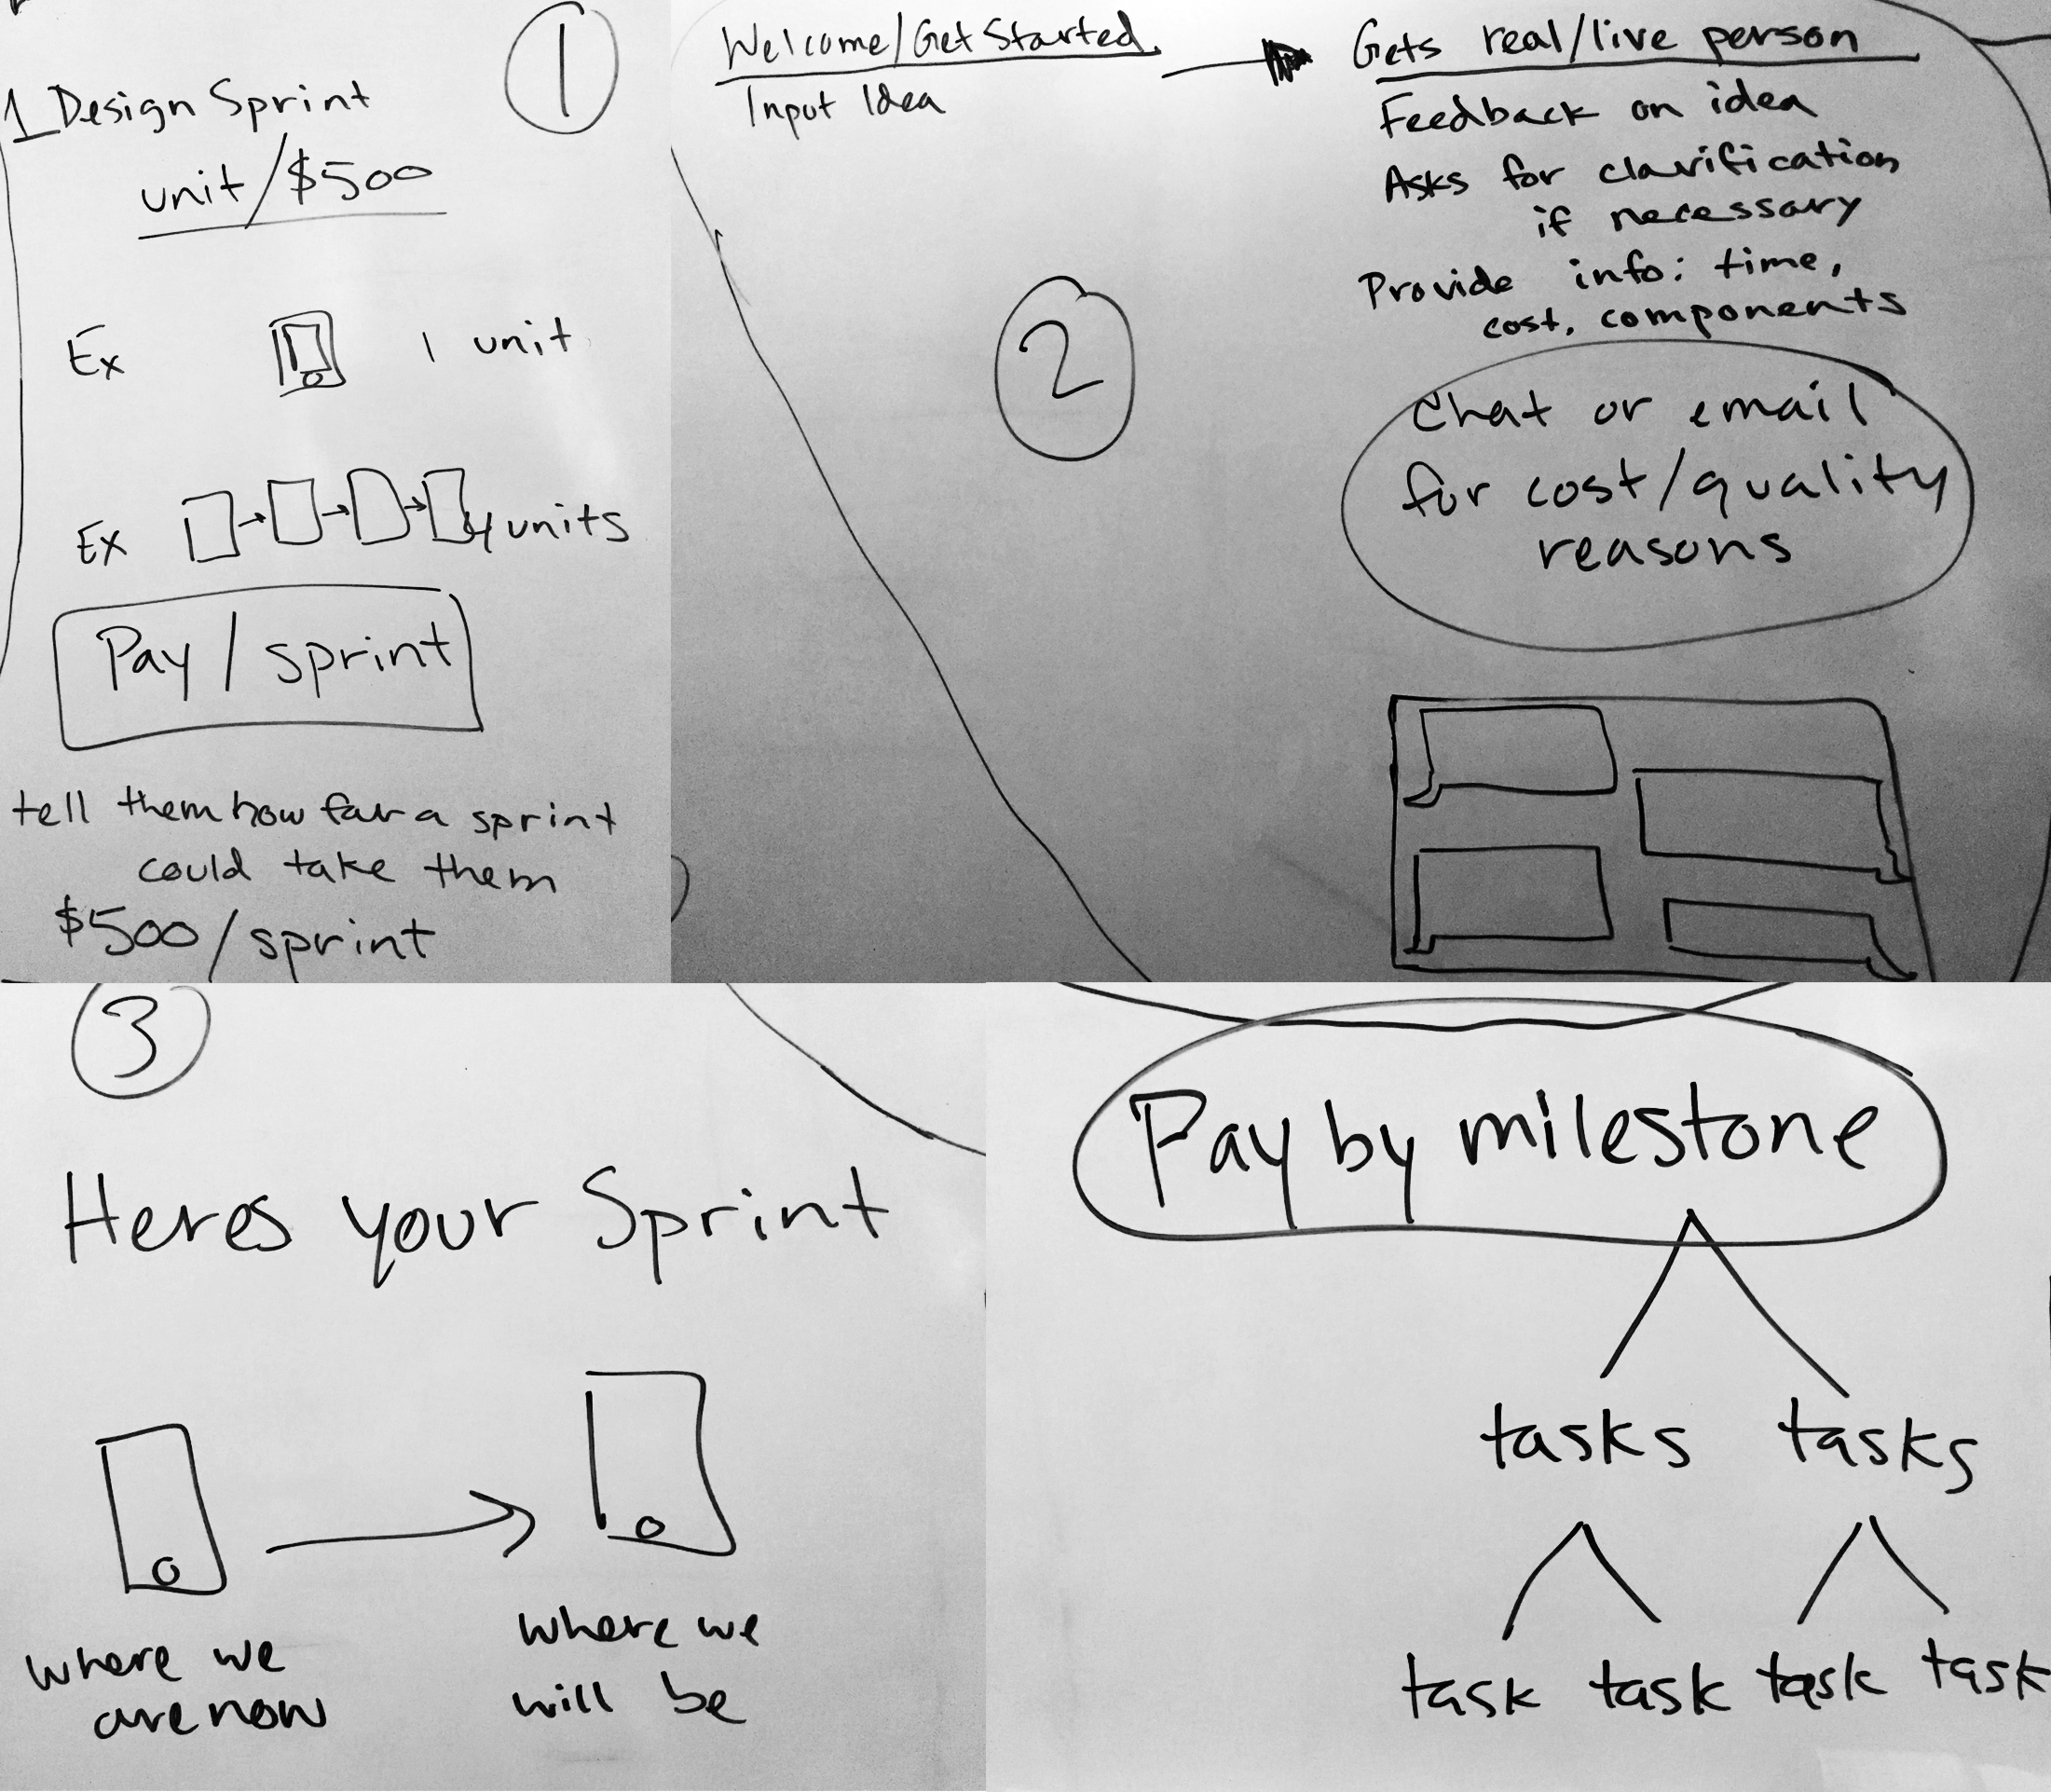 1
1 Design Sprint
unit/$500
Ex 1 unit
Ex 4 units
Pay / sprint
tell them how far a sprint
could take them
$500/sprint
Welcome/Get Started
Input Idea
2
Gets real/live person
Feedback on idea
Asks for clarification
if necessary
Provide info: time,
cost, components
Chat or email
for cost/quality
reasons
3
Heres your Sprint
where we
are now
where we
will be
Pay by milestone
tasks tasks
task task task task